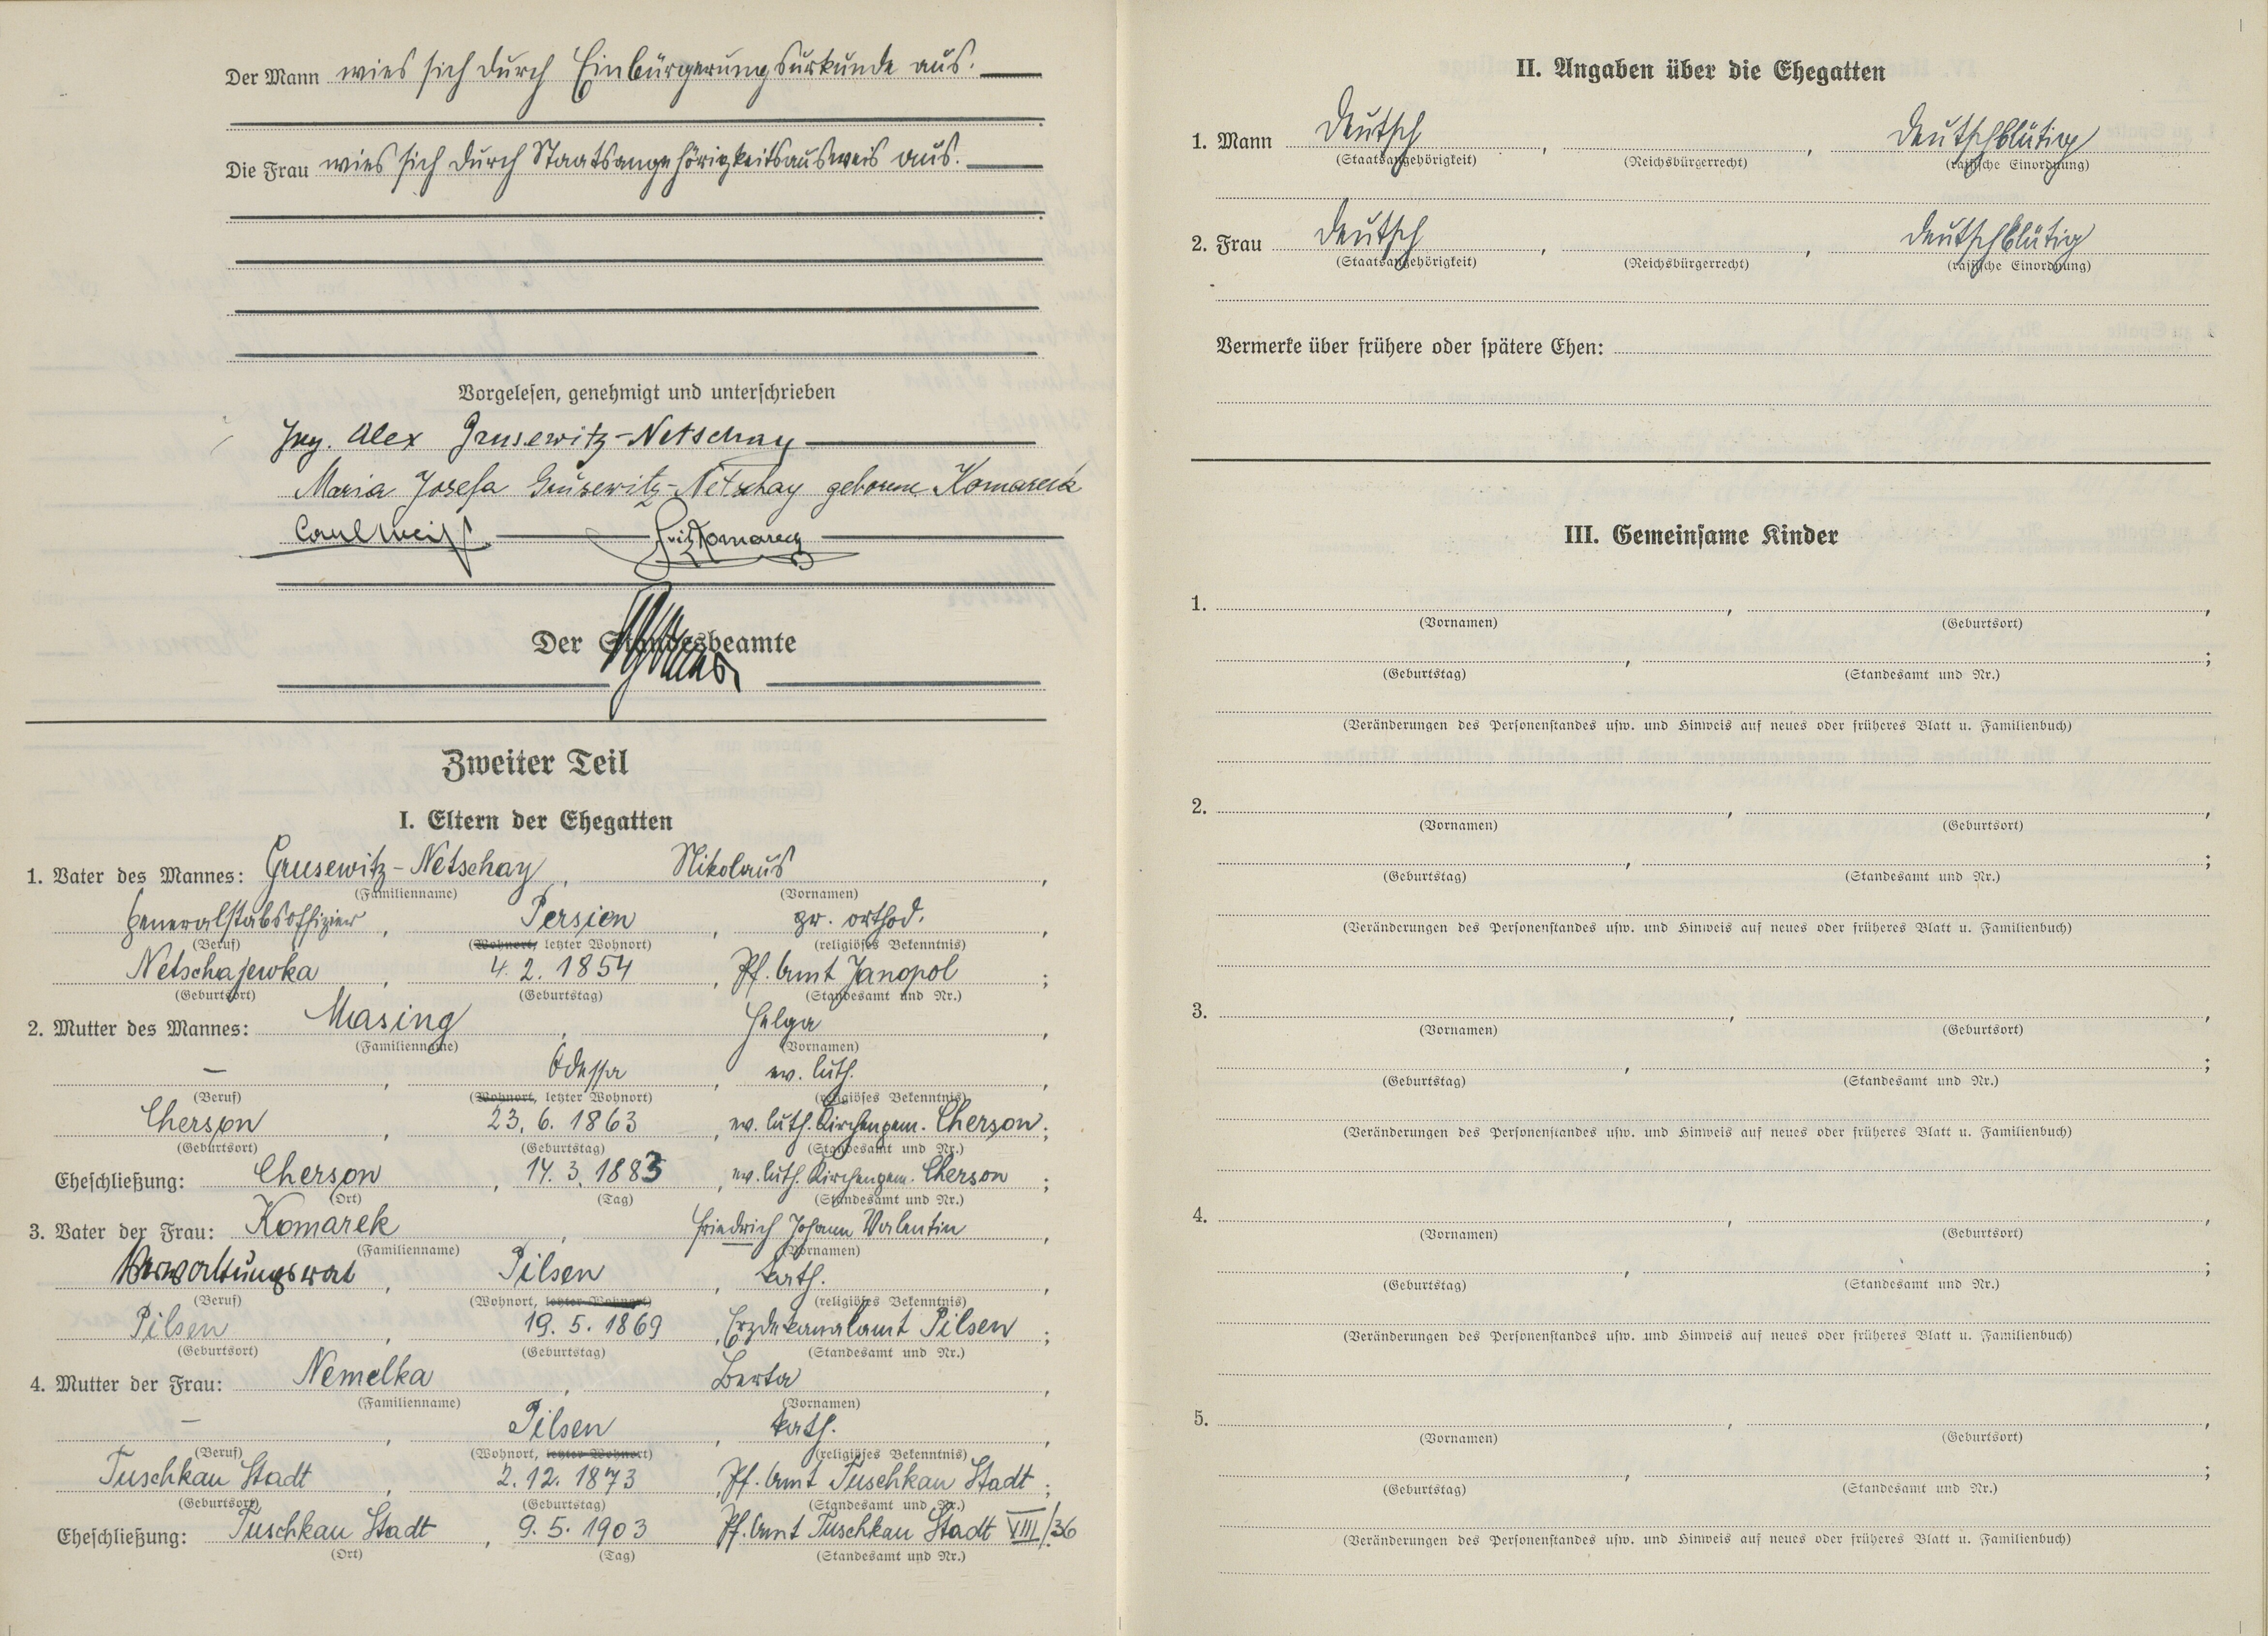 Der Mann wies sich durch Einbürgerungsurkunde aus.
Die Frau wies sich durch Staatsangehörigkeitsausweis aus.
Vorgelesen, genehmigt und unterschrieben
Ing. Alex Grusewitz-Netschay
Maria Josefa Grusewitz-Netschay geborene Komarek
Carl Weiß Fritz Komarek
Der Standesbeamte
Zweiter Teil
I. Eltern der Ehegatten
1. Vater des Mannes: Grusewitz-Netschay, Nikolaus,
(Familienname) (Vornamen)
Generalstabsoffizier, Persien, gr. orthod.,
(Beruf) (Wohnort, letzter Wohnort) (religiöses Bekenntnis)
Netschajewka, 4. 2. 1854, Pf. Amt Janopol;
(Geburtsort) (Geburtstag) (Standesamt und Nr.)
2. Mutter des Mannes: Masing, Helga,
(Familienname) (Vornamen)
—, Odessa, ev. luth.,
(Beruf) (Wohnort, letzter Wohnort) (religiöses Bekenntnis)
Cherson, 23. 6. 1863, ev. luth. Kirchengem. Cherson;
(Geburtsort) (Geburtstag) (Standesamt und Nr.)
Eheschließung: Cherson, 14. 3. 1883, ev. luth. Kirchengem. Cherson;
(Ort) (Tag) (Standesamt und Nr.)
3. Vater der Frau: Komarek, Friedrich Johann Valentin,
(Familienname) (Vornamen)
Verwaltungsrat, Pilsen, kath.,
(Beruf) (Wohnort, letzter Wohnort) (religiöses Bekenntnis)
Pilsen, 19. 5. 1869, Erzdekanalamt Pilsen;
(Geburtsort) (Geburtstag) (Standesamt und Nr.)
4. Mutter der Frau: Nemelka, Berta,
(Familienname) (Vornamen)
—, Pilsen, kath.,
(Beruf) (Wohnort, letzter Wohnort) (religiöses Bekenntnis)
Tuschkau Stadt, 2. 12. 1873, Pf. Amt Tuschkau Stadt;
(Geburtsort) (Geburtstag) (Standesamt und Nr.)
Eheschließung: Tuschkau Stadt, 9. 5. 1903 Pf. Amt Tuschkau Stadt VIII/36
(Ort) (Tag) (Standesamt und Nr.)
II. Angaben über die Ehegatten
1. Mann deutsch, , deutschblütig
(Staatsangehörigkeit) (Reichsbürgerrecht) (rassische Einordnung)
2. Frau deutsch, , deutschblütig
(Staatsangehörigkeit) (Reichsbürgerrecht) (rassische Einordnung)
Vermerke über frühere oder spätere Ehen:
III. Gemeinsame Kinder
1. , ,
(Vornamen) (Geburtsort)
, ;
(Geburtstag) (Standesamt und Nr.)
(Veränderungen des Personenstandes usw. und Hinweis auf neues oder früheres Blatt u. Familienbuch)
2. , ,
(Vornamen) (Geburtsort)
, ;
(Geburtstag) (Standesamt und Nr.)
(Veränderungen des Personenstandes usw. und Hinweis auf neues oder früheres Blatt u. Familienbuch)
3. , ,
(Vornamen) (Geburtsort)
, ;
(Geburtstag) (Standesamt und Nr.)
(Veränderungen des Personenstandes usw. und Hinweis auf neues oder früheres Blatt u. Familienbuch)
4. , ,
(Vornamen) (Geburtsort)
, ;
(Geburtstag) (Standesamt und Nr.)
(Veränderungen des Personenstandes usw. und Hinweis auf neues oder früheres Blatt u. Familienbuch)
5. , ,
(Vornamen) (Geburtsort)
, ;
(Geburtstag) (Standesamt und Nr.)
(Veränderungen des Personenstandes usw. und Hinweis auf neues oder früheres Blatt u. Familienbuch)